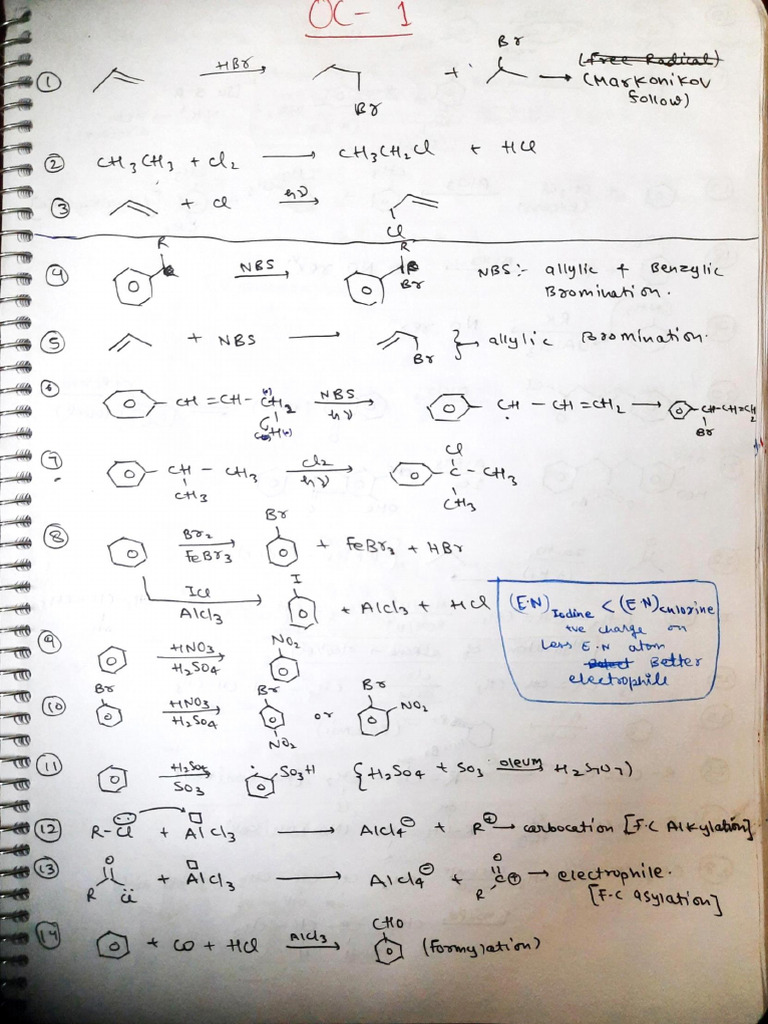 OC - 1
① HBr → Br + Br → (Free Radical) (Markonikov follow)
② CH3CH3 + Cl2 → CH3CH2Cl + HCl
③ + Cl hν → Cl
④ R NBS → R Br NBS :- allylic + Benzylic Bromination.
⑤ + NBS → Br } → allylic Bromination.
⑥ CH = CH - CH2 NBS hν → CH - CH = CH2 → CH-CH=CH2 Br
⑦ CH - CH3 CH3 Cl2 hν → Cl C - CH3 CH3
⑧ Br2 FeBr3 → Br + FeBr3 + HBr
ICl AlCl3 → I + AlCl3 + HCl
(E.N)Iodine < (E.N)chlorine
+ve charge on
Less E.N atom
Better
electrophile
⑨ HNO3 H2SO4 → NO2
⑩ Br HNO3 H2SO4 → Br NO2 or Br NO2
⑪ H2SO4 SO3 → SO3H {H2SO4 + SO3 oleum → H2S2O7)
⑫ R-Cl + AlCl3 → AlCl4⊖ + R⊕ → carbocation [F.C Alkylation]
⑬ O R Cl + AlCl3 → AlCl4⊖ + O R C⊕ → electrophile.
[F.C asylation]
⑭ + CO + HCl AlCl3 → CHO (Formylation)